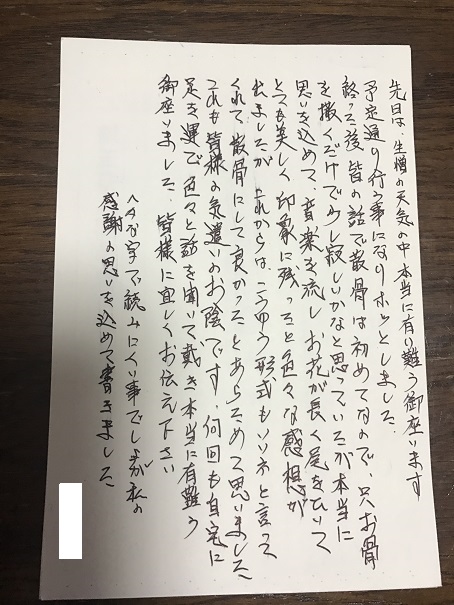 先日は、生憎の天気の中本当に有り難う御座います
予定通り行う事になりホッとしました、
終った後皆の話で散骨は初めてなので、只お骨
を撒くだけで少し寂しいかなと思っていたが本当に
思いを込めて、音楽を流しお花が長く尾をひいて
とても美しく印象に残ったと色々な感想が
出ましたが、これからは、こうゆう形式もいいネと言って
くれて、散骨にして良かったとあらためて思いました
これも皆様の気遣いのお陰です、何回も自宅に
足を運で色々と話を聞いて戴き本当に有難う
御座いました、皆様に宜しくお伝え下さい
ヘタな字で読みにくい事でしょうが私の
感謝の思いを込めて書きました